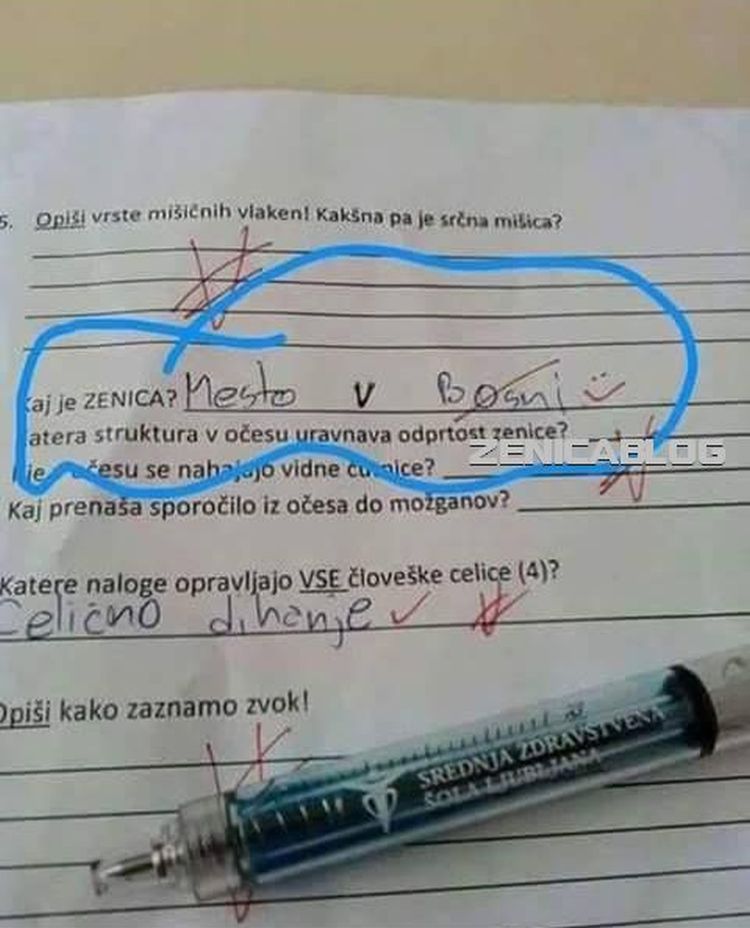 5. Opiši vrste mišičnih vlaken! Kakšna pa je srčna mišica?
Kaj je ZENICA? Mesto v Bosni
atera struktura v očesu uravnava odprtost zenice?
je očesu se nahajajo vidne čutnice?
ZENICABLOG
Kaj prenaša sporočilo iz očesa do možganov?
Katere naloge opravljajo VSE človeške celice (4)?
Celično dihanje
Opiši kako zaznamo zvok!
SREDNJA ZDRAVSTVENA
ŠOLA LJUBLJANA